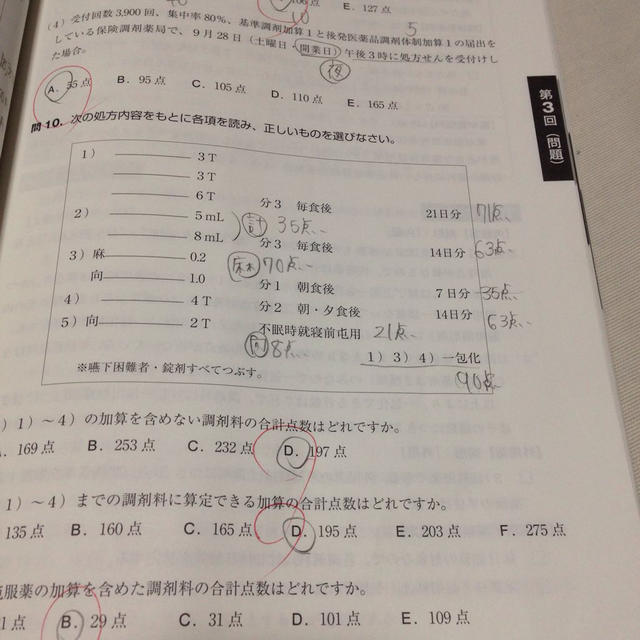 106点 E. 127点
(4) 受付回数3,900回、集中率80%、基準調剤加算1と後発医薬品調剤体制加算1の届出を
5
している保険調剤薬局で、9月28日(土曜日・開業日)午後3時に処方せんを受付けし
た場合。
後
A. 35点 B. 95点 C. 105点 D. 110点 E. 165点
第3回(問題)
問10. 次の処方内容をもとに各項を読み、正しいものを選びなさい。
1) 3T
3T
6T 分3 毎食後 21日分 71点
2) 5mL 計 35点
8mL 分3 毎食後 14日分 63点
3) 麻 0.2 麻 70点
向 1.0 分1 朝食後 7日分 35点
4) 4T 分2 朝・夕食後 14日分 63点
5) 向 2T 不眠時就寝前屯用 21点
向 8点 1) 3) 4) 一包化
90点
※嚥下困難者・錠剤すべてつぶす。
) 1)~4) の加算を含めない調剤料の合計点数はどれですか。
A. 169点 B. 253点 C. 232点 D. 197点
1)~4) までの調剤料に算定できる加算の合計点数はどれですか。
135点 B. 160点 C. 165点 D. 195点 E. 203点 F. 275点
屯服薬の加算を含めた調剤料の合計点数はどれですか。
1点 B. 29点 C. 31点 D. 101点 E. 109点